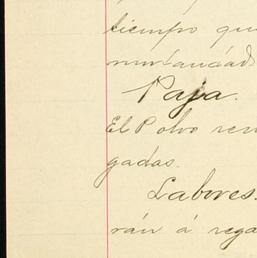 tiempo que
mortandad
Paja.
El Polvo ren
gadas.
Labores.
rán á rega